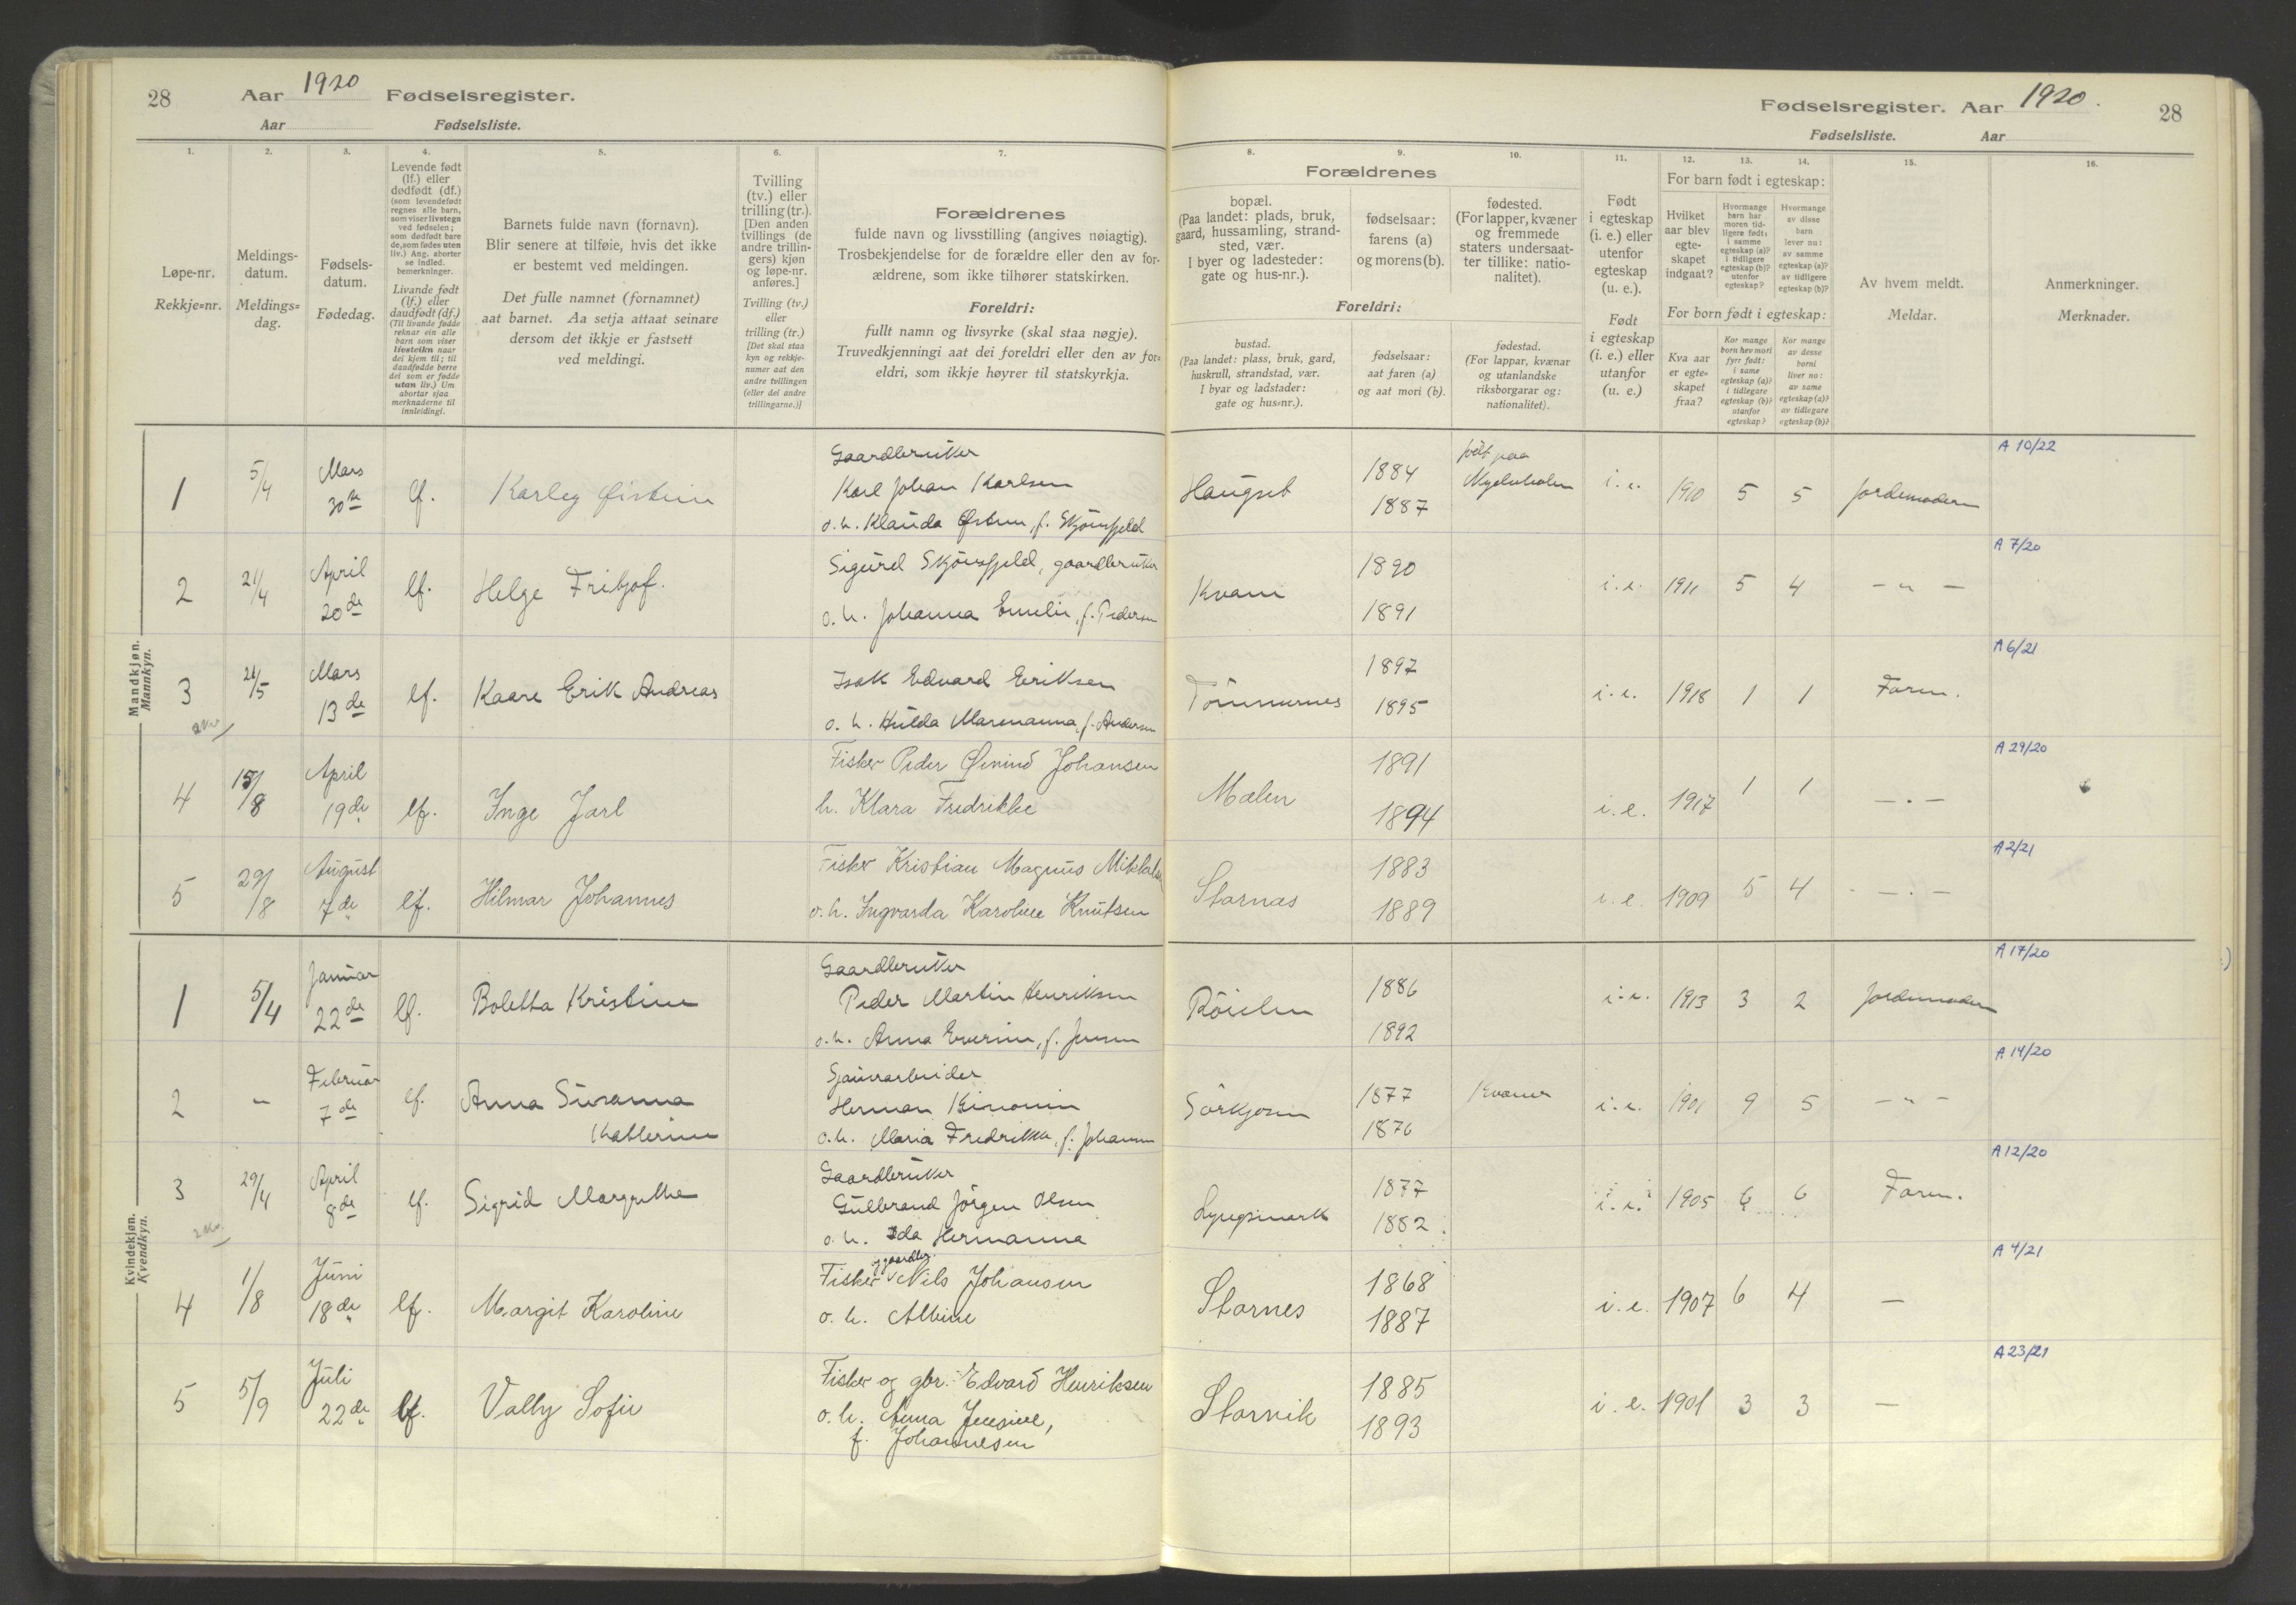 28 Aar 1920 Fødselsregister.
Aar Fødselsliste.
Fødselsregister. Aar 1920. 28
Fødselsliste. Aar
1. 2. 3. 4. 5. 6. 7. 8. 9. 10. 11. 12. 13. 14. 15. 16.
Løpe-nr.
Rekkje-nr.
Meldings-
datum.
Meldings-
dag.
Fødsels-
datum.
Fødedag.
Levende født
(lf.) eller
dødfødt (df.)
(som levendefødt
regnes alle barn,
som viser livstegn
ved fødselen;
som dødfødt bare
de, som fødes uten
liv.) Ang. aborter
se indled.
bemerkninger.
Livande født
(lf.) eller
daudfødt (df.)
(Til livande fødde
reknar ein alle
barn som viser
livsteikn naar
dei kjem til; til
daudfødde berre
dei som er fødde
utan liv.) Um
abortar sjaa
merknaderne til
innleidingi.
Barnets fulde navn (fornavn).
Blir senere at tilføie, hvis det ikke
er bestemt ved meldingen.
Det fulle namnet (fornamnet)
aat barnet. Aa setja attaat seinare
dersom det ikkje er fastsett
ved meldingi.
Tvilling
(tv.) eller
trilling (tr.).
[Den anden
tvillings (de
andre trillin-
gers) kjøn
og løpe-nr.
anføres.]
Tvilling (tv.)
eller
trilling (tr.)
[Det skal staa
kyn og rekkje-
numer aat den
andre tvillingen
(eller dei andre
trillingarne.)]
Forældrenes
fulde navn og livsstilling (angives nøiagtig).
Trosbekjendelse for de forældre eller den av for-
ældrene, som ikke tilhører statskirken.
Foreldri:
fullt namn og livsyrke (skal staa nøgje).
Truvedkjenningi aat dei foreldri eller den av for-
eldri, som ikkje høyrer til statskyrkja.
Forældrenes
bopæl.
(Paa landet: plads, bruk,
gaard, hussamling, strand-
sted, vær.
I byer og ladesteder:
gate og hus-nr.).
fødselsaar:
farens (a)
og morens (b).
fødested.
(For lapper, kvæner
og fremmede
staters undersaat-
ter tillike: natio-
nalitet).
Foreldri:
bustad.
(Paa landet: plass, bruk, gard,
huskrull, strandstad, vær.
I byar og ladstader:
gate og hus-nr.).
fødselsaar:
aat faren (a)
og aat mori (b).
fødestad.
(For lappar, kvænar
og utanlandske
riksborgarar og:
nationalitet).
Født
i egteskap
(i. e.) eller
utenfor
egteskap
(u. e.).
Født
i egteskap
(i. e.) eller
utanfor
(u. e.)
For barn født i egteskap:
Hvilket
aar blev
egte-
skapet
indgaat?
Hvormange
barn har
moren tid-
ligere født:
i samme
egteskap (a)?
i tidligere
egteskap (b)?
utenfor
egteskap?
Hvormange
av disse
barn
lever nu:
av samme
egteskap (a)?
av tidligere
egteskap (b)?
For born født i egteskap:
Kva aar
er egte-
skapet
fraa?
Kor mange
born hev mori
fyrr født:
i same
egteskap (a)?
i tidlegare
egteskap (b)?
utanfor
egteskap?
Kor mange
av desse
borni
liver no:
av same
egteskap (a)?
av tidlegare
egteskap (b)?
Av hvem meldt.
Meldar.
Anmerkninger.
Merknader.
Mandkjøn.
Mannkyn.
Gaardbruker
1 5/4 Mars 30te lf. Karley Øistein Karl Johan Karlsen
o. h. Klauda Østrun, f. Skjønsfjeld
Haugset 1884 1887 født paa i. e. 1910 5 5 Jordemoderen A 10/22
2 21/4 April 20de lf. Helge Fritjof. Sigurd Skjønsfjeld, gaardbruker
o. h. Johanna Emelie, f. Pedersen
Kvam 1890 1891 i. e. 1911 5 4 — " — A 7/20
3 21/5 Mars 13de lf. Kaare Erik Andreas Isak Edvard Eriksen
o. h. Hulda Marenanna, f. Andersen
Tömmernes 1897 1895 i. e. 1918 1 1 Faren. A 6/21
4 15/8 April 19de lf. Inge Jarl Fisker Peder Øivind Johansen
h. Klara Fredrikke
Mælen 1891 1894 i. e. 1917 1 1 — . — A 29/20
5 29/8 August 7de lf. Hilmar Johannes Fisker Kristian Magnus Mikkalsen
o. h. Ingvarda Karoline Knutsen
Stornæs 1883 1889 i. e. 1909 5 4 — . — A 2/21
Kvindekjøn.
Kvendkyn.
Gaardbruker
1 5/4 Januar 22de lf. Boletta Kristine Peder Martin Henriksen
o. h. Anna Everine, f. Jensen
Röielen 1886 1892 i. e. 1913 3 2 Jordemoderen A 17/20
2 — Februar 7de lf. Anna Susanna
Katherine
Herman
o. h. Maria Fredrikke, f. Johansen
Sörkjosen 1877 1876 Kvæner i. e. 1901 9 5 — " — A 14/20
Gaardbruker
3 29/4 April 8de lf. Sigrid Margrethe Gulbrand Jörgen Olsen
o. h. Ida Hermanna
Lyngsmark 1877 1882 i. e. 1905 6 6 Faren. A 12/20
og gaardbr.
4 1/8 Juni 18de lf. Margit Karoline Fisker Nils Johansen
o. h. Albine
Stornes 1868 1887 i. e. 1907 6 4 — A 4/21
5 5/9 Juli 22de lf. Valby Sofie Fisker og gbr. Edvard Henriksen
o. h. Anna Jensine,
f. Johannesen
Storvik 1885 1893 i. e. 1901 3 3 — A 23/21